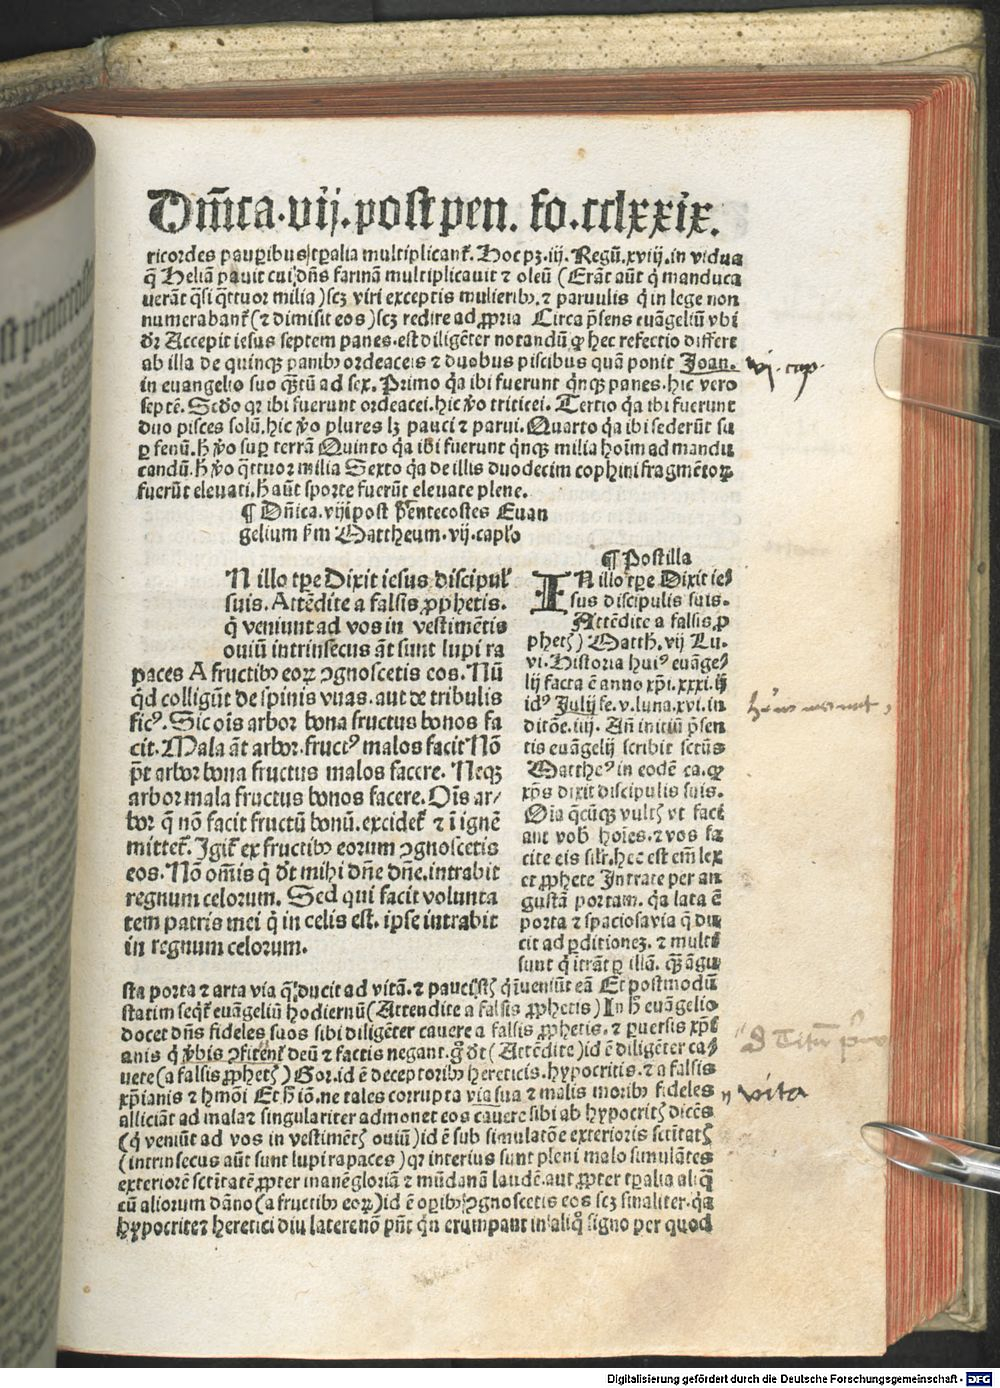 Dm̄ica.vij.post pen. fo.cclxxix.
ricordes pauꝑibus tꝑalia multiplicant᷑. Hoc pꝫ.iij. Regū.xviij.in vidua
q̄ Heliā pauit cui dn̄s farinā multiplicauit ⁊ oleū (Erāt aūt q̇ manduca
uerāt q̄si q̄ttuor milia) scꝫ viri exceptis mulierib⁹.⁊ paruulis q̇ in lege non
numerabant᷑ (⁊ dimisit eos) scꝫ redire ad ꝓpria Circa p̄sens euāgeliū vbi
dr̄ Accepit iesus septem panes.est diligēter notandū ꝙ hec refectio differt
ab illa de quinqꝫ panib⁹ ordeaceis ⁊ duobus piscibus quā ponit Joan.
vj. cap.
in euangelio suo q̄ꝫtū ad sex. Primo q̇a ibi fuerunt q̇nqꝫ panes.hic vero
septē. Scd̄o qꝛ ibi fuerunt ordeacei.hic v̄o triticei. Tertio q̇a ibi fuerunt
duo pisces solū.hic v̄o plures lꝫ pauci ⁊ parui. Quarto q̇a ibi sederūt su
ꝑ fenū.h̄ v̄o suꝑ terrā Quinto q̇a ibi fuerunt q̇nqꝫ milia hoīm ad mandu
candū.h̄ v̄o q̄ttuor milia Sexto q̇a de illis duodecim cophini fragmētoꝝ
fuerūt eleuati.h̄ aūt sporte fuerūt eleuate plene.
¶ Dn̄ica.viij post Pentecostes Euan
gelium ẜm Mattheum.vij.capl'o
N illo tꝑe Dixit iesus discipul'
suis. Attēdite a falsis ꝓphetis.
q̇ veniunt ad vos in vestimētis
ouiū intrinsecus āt sunt lupi ra
paces A fructib⁹ eoꝝ ꝯgnoscetis eos. Nū
q̇d colligūt de spinis vuas.aut de tribulis
fic⁹. Sic oīs arbor bona fructus bonos fa
cit. Mala āt arbor.fruct⁹ malos facit Nō
p̄t arbor bona fructus malos facere. Neqꝫ
arbor mala fructus bonos facere. Oīs ar/
bor q̄ nō facit fructū bonū.excidet᷑ ⁊ ī ignē
mittet᷑. Igit᷑ ex fructib⁹ eorum ꝯgnoscetis
eos. Nō om̄is q̇ dt̄ mihi dn̄e dn̄e.intrabit
regnum celorum. Sed qui facit volunta
tem patris mei q̇ in celis est. ipse intrabit
in regnum celorum.
¶ Postilla
IN illo tꝑe Dixit ie/
sus discipulis suis.
Attēdite a falsis ꝓ
phetꝭ) Matth. vij Lu.
vi. Historia hui⁹ euāge/
lij facta ē anno xp̄i.xxxi.iij
id⁹ Julij fe.v.luna.xvi.in
ditōe.iiij. An̄ initiū p̄sen
tis euāgelij scribit sctūs
Matthe⁹ in eodē ca.ꝙ
xp̄s dixit discipulis suis.
Oīa q̄cūqꝫ vultꝭ vt faci
ant vob̄ hoīes.⁊ vos fa
cite eis sil'r.hec est em̄ lex
et ꝓphete Intrate per an
gustā portam. q̇a lata ē
porta ⁊ spaciosa via q̄ du
cit ad ꝑditioneꝫ. ⁊ multi
sunt q̇ ītrāt ꝑ illā. q̄ꝫ āgu
sta porta ⁊ arta via q̄ ducit ad vitā.⁊ pauci sꝭt q̇ īueniūt eā Et postmodū
statim seq̇t᷑ euāgeliū hodiernū (Attendite a falsis ꝓphetis) In h̄ euāgelio
docet dn̄s fideles suos sibi diligēter cauere a falsis ꝓphetis. ⁊ ꝑuersis xp̄i
anis q̇ v̄bis ꝯfitent᷑ deū ⁊ factis negant.g̊ dt̄ (Attēdite) id ē diligēter ca/
uete (a falsis ꝓphetꝭ) Gor.id ē deceptorib⁹ hereticis.hypocritis.⁊ a falsis
xp̄ianis ⁊ hmōi Et h̄ iō.ne tales corrupta via sua ⁊ malis morib⁹ fideles
vita
alliciāt ad mala⁊ singulariter admonet eos cauere sibi ab hypocritꝭ dicēs
(q̇ veniūt ad vos in vestimētꝭ ouiū) id ē sub simulatōe exterioris sctītatꝭ
(intrinsecus aūt sunt lupi rapaces) qꝛ interius sunt pleni malo simulātes
exteriorē sctītatē ꝓpter inanē gloriā ⁊ mūdanā laudē.aut ꝓpter tꝑalia aliq̄
cū aliorum dāno (a fructib⁹ eoꝝ) id ē oꝑib⁹ ꝯgnoscetis eos scꝫ finaliter.q̇a
hypocrite⁊ heretici diu latere nō pn̄t q̇n erumpant in aliq̊ signo per quod
Digitalisierung gefördert durch die Deutsche Forschungsgemeinschaft - DFG